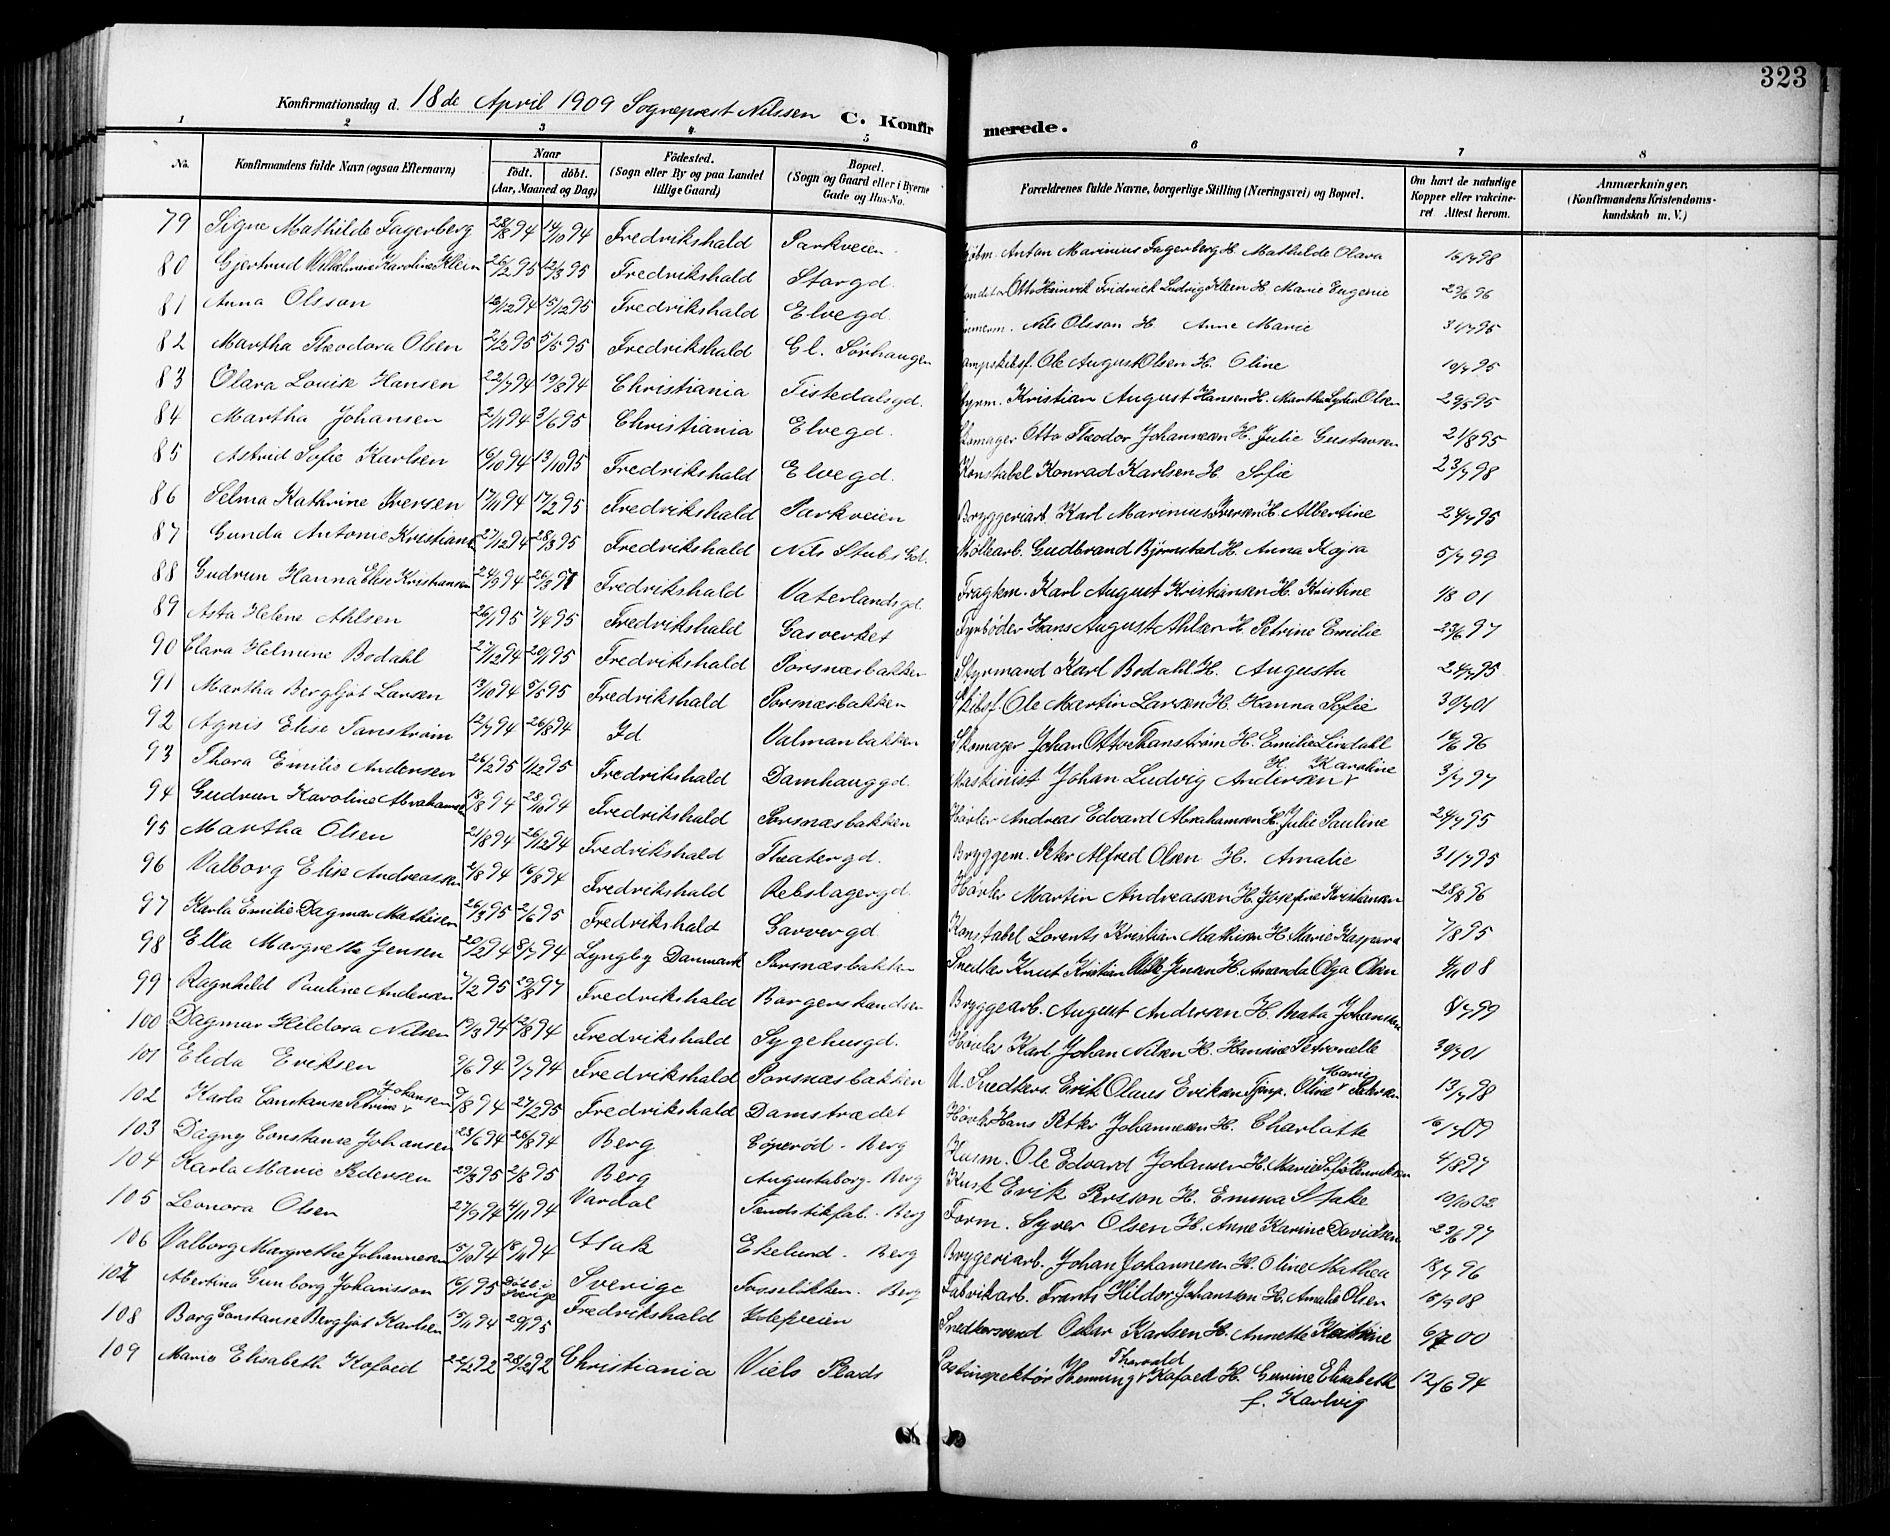 323
Konfirmationsdag d. 18de April 1909 Sogneprest Nilssen C. Konfirmerede.
1 2 3 4 5 6 7 8
No. Konfirmandens fulde Navn (ogsaa Efternavn) Naar født. døbt. (Aar, Maaned og Dag) Födested. (Sogn eller By og paa Landet tillige Gaard) Bopæl. (Sogn og Gaard eller i Byerne Gade og Hus-No. Forældrenes fulde Navne, borgerlige Stilling (Næringsvei) og Bopæl. Om havt de naturlige Kopper eller vakcineret Attest herom. Anmærkninger. (Konfirmandens Kristendomskundskab m. V.)
79 Signe Mathilde Fagerberg 28/8 94 14/10 94 Fredrikshald Parkveien Anton Marinius Fagerberg H. Mathilde Olava 16/7 98
80 Gjertrud Vilhelmine Karoline Klein 26/2 95 12/3 95 Fredrikshald Storgd. Otto Heinrik Fridrick Ludvig Kleen H. Marie Eugenie 29/6 96
81 Anna Olsson 15/12 95 Fredrikshald Elvegd. Nils Olsson H. Anne Marie 31/7 95
82 Martha Theodora Olsen 5/5 95 Fredrikshald Gl. Sørhaugen Ole August Olsen H. Oline 19/7 95
83 Olara Louise Hansen 22/7 94 19/8 94 Christiania Tistedalsgd. Kristian August Hansen H. Martha Lydia Olsen 29/5 95
84 Martha Johansen 2/11 94 3/6 95 Christiania Elvegd. Skomager Otto Theodor Johannesen H. Julie Gustavsen 21/8 95
85 Astrid Sofie Karlsen 16/10 94 13/10 95 Fredrikshald Elvegd. Konstabel Konrad Karlsen H. Sofie 23/7 98
86 Selma Kathrine Iversen 17/11 94 17/2 95 Fredrikshald Parkveien Bryggeriarb. Karl Marinius Iversen H. Albertine 24/7 95
87 Gunda Antonie Kristians 27/12 94 28/3 95 Fredrikshald Nils Stubs Gd. Møllearb. Gudbrand Bjørnstad H. Anna Kajsa 5/7 99
88 Gudrun Hanna Elise Kristiansen 24/9 94 Fredrikshald Vaterlandsgd. Fragtm. Karl August Kristiansen H. Kristine 1/8 01
89 Asta Helene Ahlsen 26/1 95 7/4 95 Fredrikshald Gasverket Fyrbøder Hans August Ahlsen H. Petrine Emilie 23/6 97
90 Clara Helmine Bodahl 27/12 94 20/11 95 Fredrikshald Porsnæsbakken Styrmand Karl Bodahl H. Augusta 24/7 95
91 Martha Bergljot Larsen 13/10 94 5/5 95 Fredrikshald Porsnæsbakken Skibsf. Ole Martin Larsen H. Hanna Sofie 30/7 01
92 Agnis Elise Tanstrøm 12/7 94 26/8 94 Id Valmanbakken Skomager Johan Otto Thanstrøm H. Emilie Lindahl 14/6 96
93 Thora Emilie Andersen 26/2 95 1/12 95 Fredrikshald Damhauggd. Maskinist Johan Ludvig Andersen H. Karoline 3/7 97
94 Gudrun Karoline Abrahamsen 18/8 94 28/10 94 Fredrikshald Porsnæsbakken Høvler Andreas Edvard Abrahamsen H. Julie Pauline 24/7 95
95 Martha Olsen 21/8 94 26/12 94 Fredrikshald Theatergd. Bryggem. Peter Alfred Olsen H. Amalie 31/7 95
96 Valborg Elise Andreassen 2/8 94 16/8 94 Fredrikshald Rebslagergd. Høvler Martin Andreassen H. Josefine Kristiansen 28/8 96
97 Karla Emilie Dagmar Mathisen 26/3 95 2/6 95 Fredrikshald Garvergd. Konstabel Lorents Kristian Mathisen H. Marie Kaspara 7/8 95
98 Ella Margrethe Jensen 20/2 94 8/7 94 Lyngby Danmark Porsnæsbakken Snedker Knut Kristian Jensen H. Amanda Olga Olsen 4/11 08
99 Ragnhild Pauline Andersen 7/2 95 29/8 97 Fredrikshald Borgerskandsen Bryggearb. August Andersen H. Mata Johansen 8/7 99
100 Dagmar Hildora Nilsen 19/3 94 12/8 94 Fredrikshald Sygehusgd. Høvler Karl Johan Nilsen H. Hansine Petronelle 30/7 01
101 Elida Eriksen 9/6 94 9/7 94 Fredrikshald Porsnæsbakken U. Snedkers. Erik Olaus Eriksen Tjnp. Oline Marie Petersen 13/7 98
102 Karla Constanse Petrine Johansen 9/8 94 27/2 95 Fredrikshald Damstrædet Høvler Hans Petter Johannesen H. Charlotte 16/1 09
103 Dagny Constanse Johansen 23/6 94 26/8 94 Berg Løperød - Berg Husm. Ole Edvard Johansen H. Marie Sofi Henriksen 4/8 97
104 Karla Marie Pedersen 29/3 95 2/8 95 Berg Augustaborg - Berg Kusk Erik Persson H. Emma Stake 10/10 02
105 Leonora Olsen 27/9 94 4/11 94 Vardal Tændstikfab. - Berg Form. Syver Olsen H. Anne Karine Davidsen 22/6 97
106 Valborg Margrethe Johannesen 15/10 94 18/11 94 Asak Ekelund - Berg Bryggeriarb. Johan Johannesen H. Oline Mathea 18/7 96
107 Albertina Gunborg Johansson 16/1 95 Døbt i Sverige Sverige Fosseløkken - Berg Fabrikarb. Frants Hildor Johansson H. Amalie Olsen 18/9 08
108 Borg Constanse Bergljot Karlsen 15/11 94 20/1 95 Fredrikshald Golfveien Snedkersvend Oskar Karlsen H. Annette Katrine 6/7 00
109 Marie Elisabeth Kofoed 22/2 92 28/2 92 Christiania Viels Plads Postinspektør Henning Thorvald Kofoed H. Gunine Elisabeth f. Karlvig 12/6 94